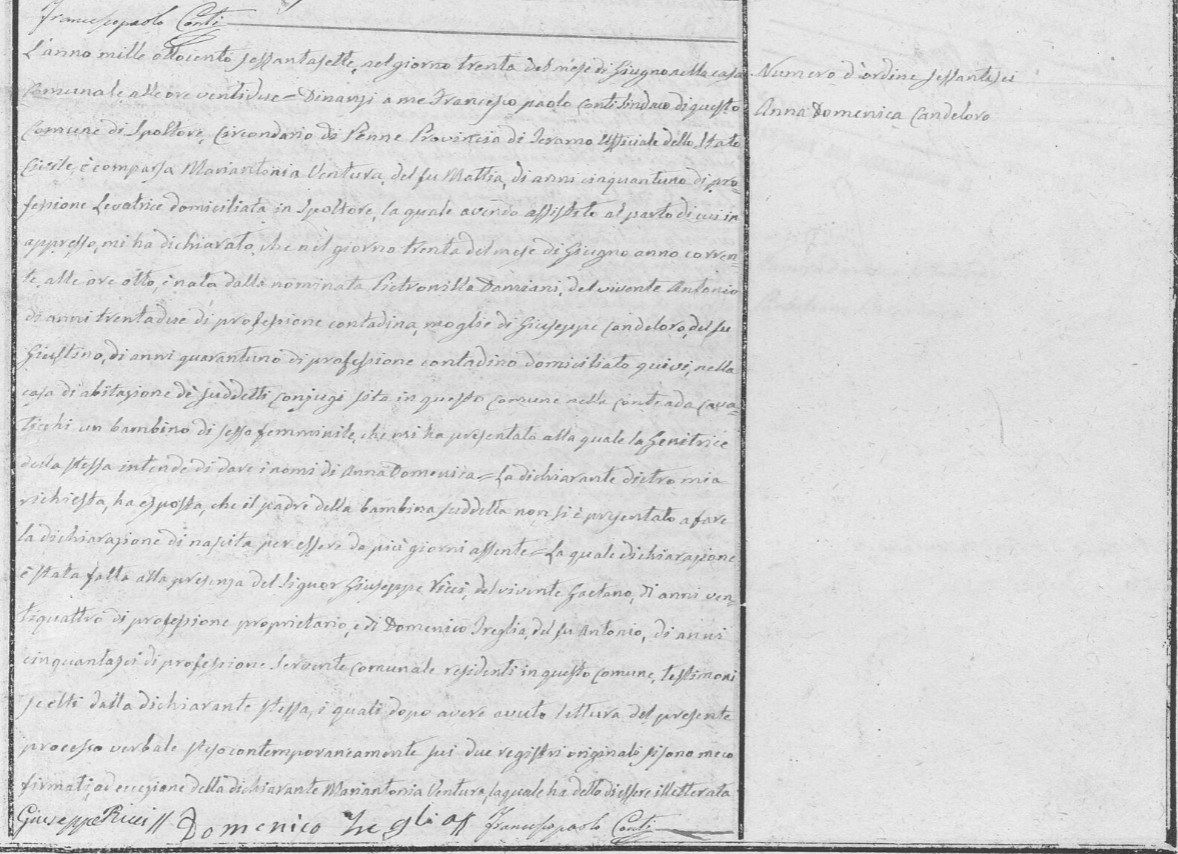 Francescopaolo Conti
L'anno mille ottocento sessantasette, nel giorno trenta del mese di Giugno nella casa
comunale alle ore ventidue = Dinanzi a me Francesco paolo Conti Sindaco di questo
Comune di Spoltore, Circondario di Penne Provincia di Teramo Uffiziale dello Stato
Civile, è comparsa Mariantonia Ventura, del fu Mattia, di anni cinquantuno di pro=
fessione Levatrice domiciliata in Spoltore, la quale avendo assistito al parto di cui in
appresso, mi ha dichiarato, che nel giorno trenta del mese di Giugno anno corren=
te, alle ore otto, è nata dalla nominata Pietronilla Damiani, del vivente Antonio
di anni trentadue di professione contadina, moglie di Giuseppe Candeloro, del fu
Giustino, di anni quarantuno di professione contadino domiciliato quivi, nella
casa di abitazione de' suddetti conjugi sita in questo comune nella contrada Cava=
ticchi un bambino di sesso femminile, che mi ha presentato alla quale la Genitrice
della stessa intende di dare i nomi di Anna Domenica = La dichiarante dietro mia
richiesta, ha esposta, che il padre della bambina suddetta non si è presentato a fare
la dichiarazione di nascita per essere da più giorni assente = La quale dichiarazione
è stata fatta alla presenza del Signor Giuseppe Ricci, del vivente Gaetano, di anni ven=
tiquattro di professione proprietario, e di Domenico Treglia, del fu Antonio, di anni
cinquantasei di professione Servente comunale residenti in questo comune, testimoni
scelti dalla dichiarante stessa, i quali dopo avere avuto lettura del presente
processo verbale steso contemporaneamente sui due registri originali si sono meco
firmati, ad eccezione della dichiarante Mariantonia Ventura, la quale ha detto di essere illetterata
Giuseppe Ricci Domenico Treglia Francescopaolo Conti
Numero d'ordine sessantasei
Anna Domenica Candeloro